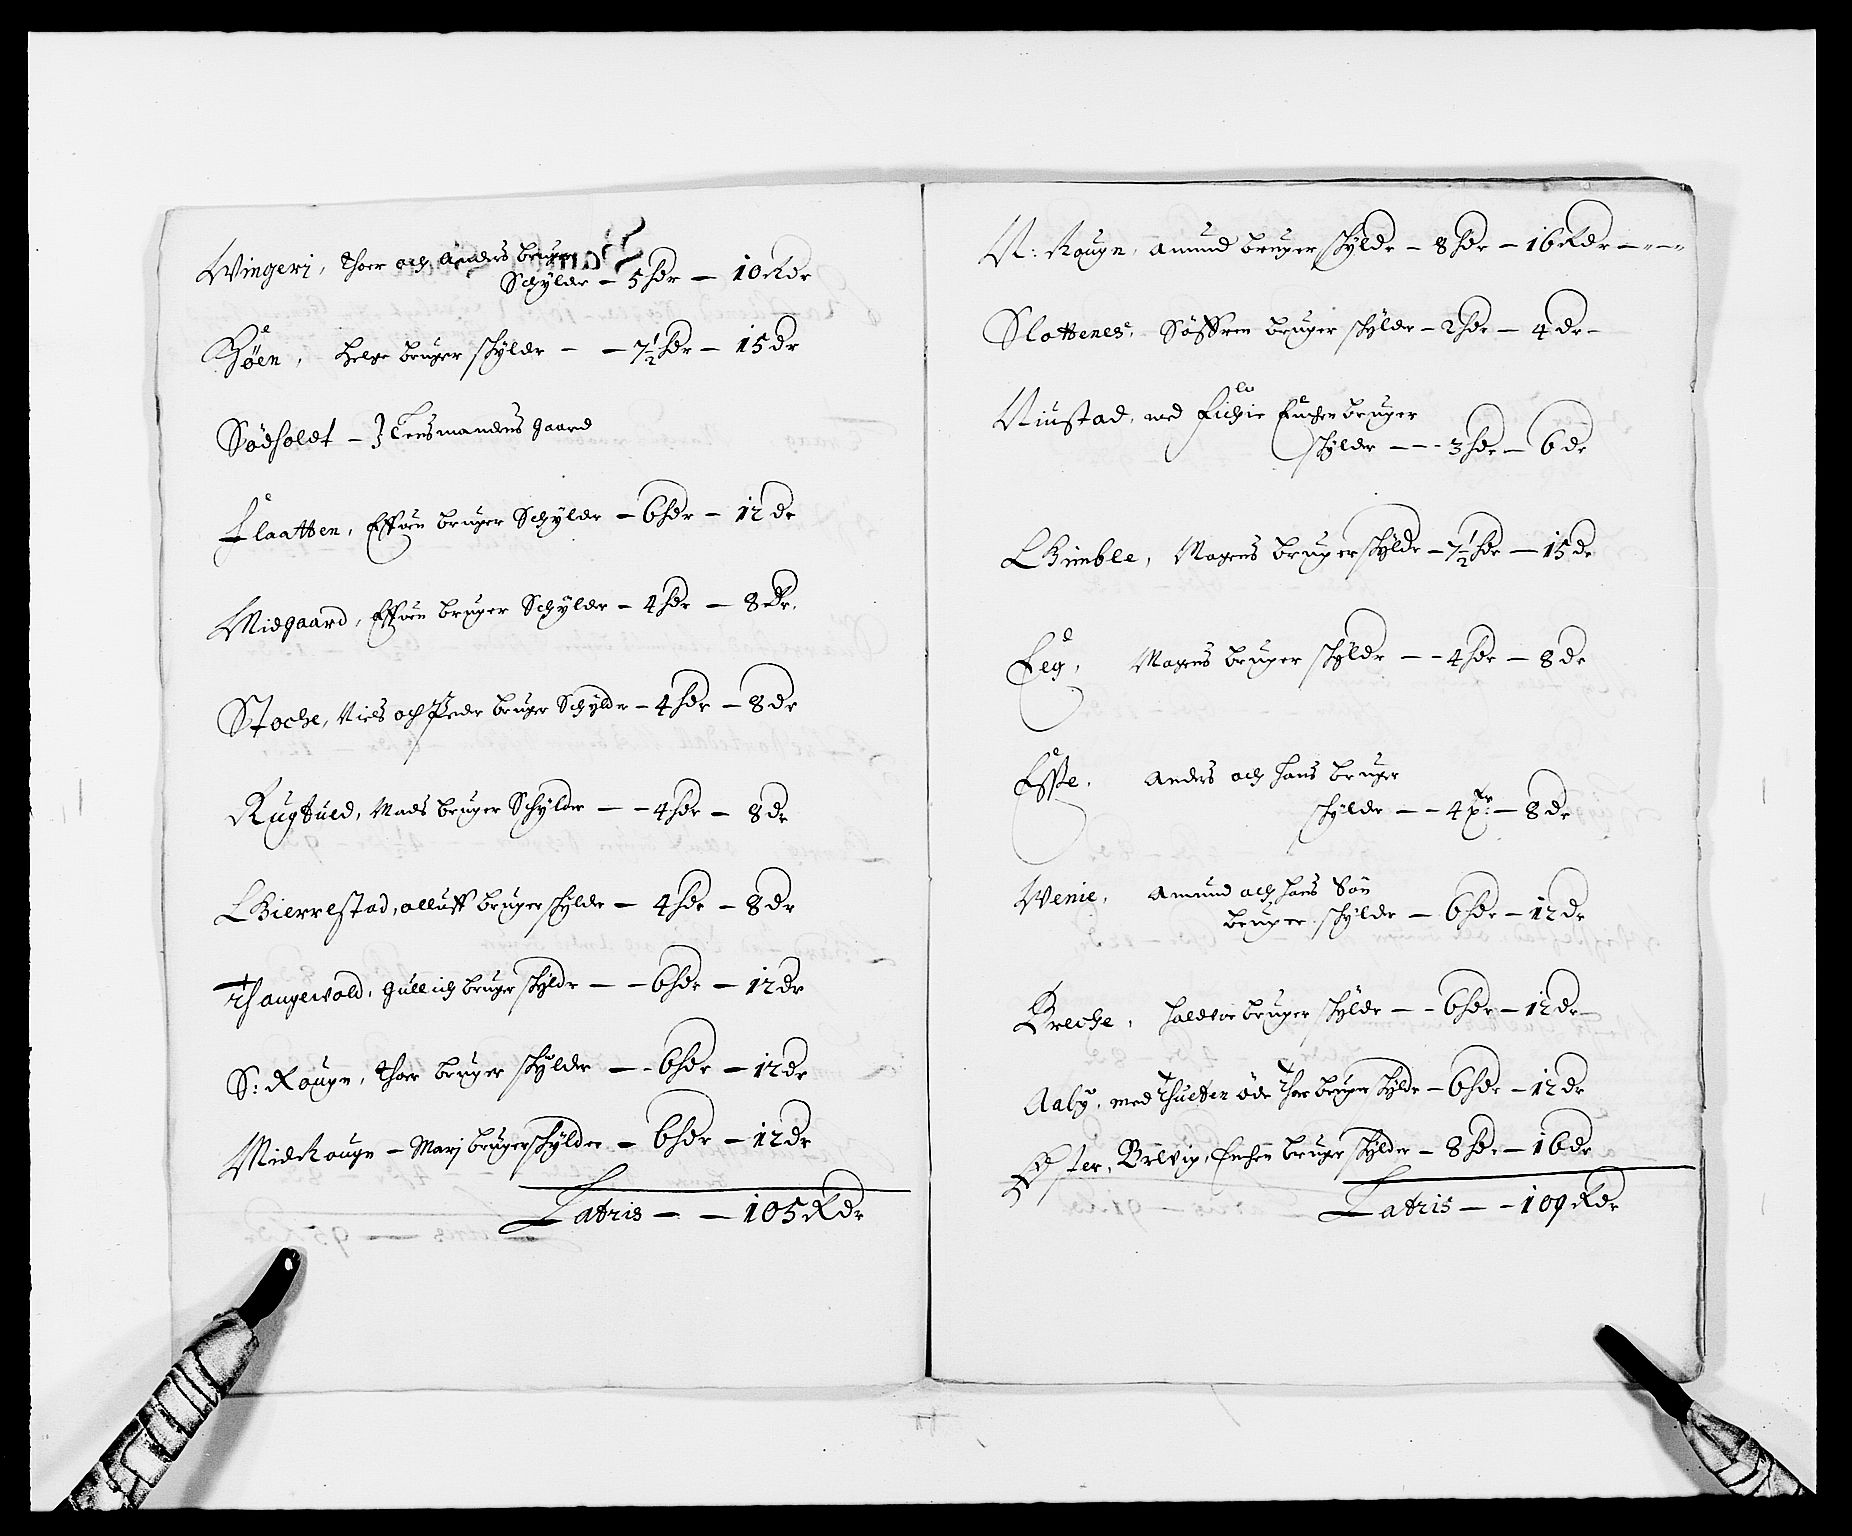 Wingeri, Thor och Anders bruger
Schylder – 5 hdr – 10 Rdr
Høen, Helge bruger schylder – – 7½ hdr – 15 dr
Sødholdt – Lensmandens gaard
Flaatten, bruger Schylder – 6 hdr – 12 dr
Midgaard, bruger Schylder – 4 hdr – 8 Rr.
Stoche, Niels och Peder bruger Schylder – 4 hdr – 8 dr
Rugtued, Mads bruger Schylder – – 4 hdr – 8 dr
Bierrestad, olluff bruger schylder – 4 hdr – 8 dr
Thangevold, Gullich bruger schylder – – 6 hdr – 12 dr
S: Rougn, Thor bruger schylder – – 6 hdr – 12 dr
Mid Rougn – Marj bruger schylder – 6 hdr – 12 dr
Latris – – 105 Rdr
N: Rougn, Amund bruger schylder – 8 hdr – 16 Rdr – – –
Slottenes, Søffren bruger schylder – 2 hdr – 4 dr –
Niustad, med bruger
schylder – – – 3 hdr – 6 dr
Bimble, Mogens bruger schylder – 7½ hdr – 15 dr
Eeg, Mogens bruger schylder – – 4 hdr – 8 dr
Anders och Hans bruger
schylder – – 4 – 8 dr
Wenie, Amund och Hans Søn
bruger schylder – 6 hdr – 12 dr
Breche, Haldvor bruger schylder – – 6 hdr – 12 dr –
Aaby, med øde Thor bruger schylder – 6 hdr – 12 dr
Øster, bruger schylder – 8 hdr – 16 dr
Latris – – 109 Rdr